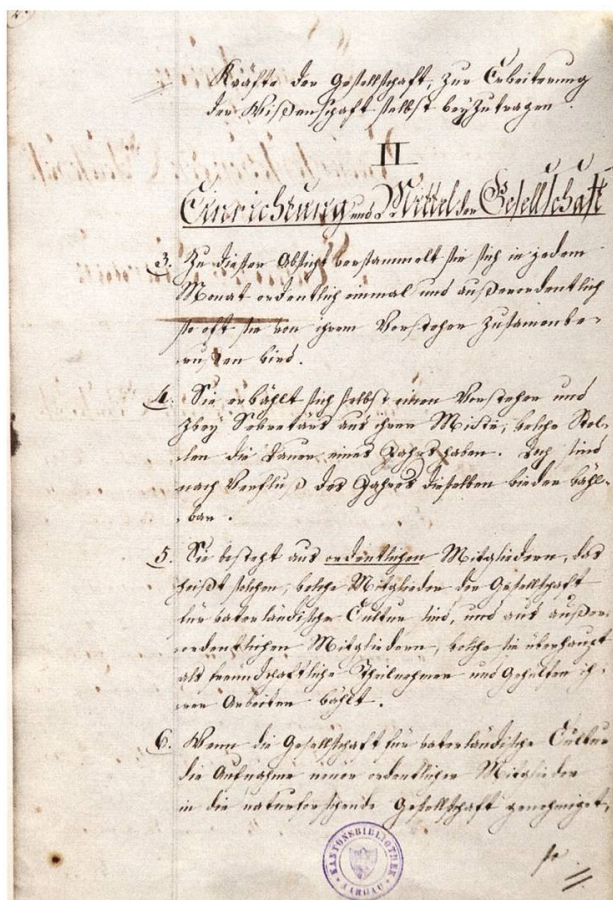 Kräfte der Gesellschaft, zur Erweiterung
der Wißenschaft selbst beyzutragen.
II
Einrichtung und Mittel der Gesellschaft
3. Zu dieser Absicht versammelt sie sich in jedem
Monat ordentlich einmal und außerordentlich
so oft sie von ihrem Vorsteher zusamenbe-
rufen wird.
4. Sie erwählt sich selbst einen Vorsteher und
zwey Sekretärs aus ihrer Mitte, welche Stel-
len die Dauer eines Jahres haben. Doch sind
nach Verfluß des Jahres dieselben wieder wähl-
bar.
5. Sie besteht aus ordentlichen Mitgliedern, das
heißt solchen, welche Mitglieder der Gesellschaft
für vaterländische Cultur sind, und aus außer-
ordentlichen Mitgliedern, welche sie überhaupt
als freundschaftliche Theilnehmer und Gehülfen ih-
rer Arbeiten wählt.
6. Wenn die Gesellschaft für vaterländische Cultur
die Aufnahme neuer ordentlicher Mitglieder
in die naturforschende Gesellschaft genehmiget,
so
KANTONSBIBLIOTHEK
AARGAU